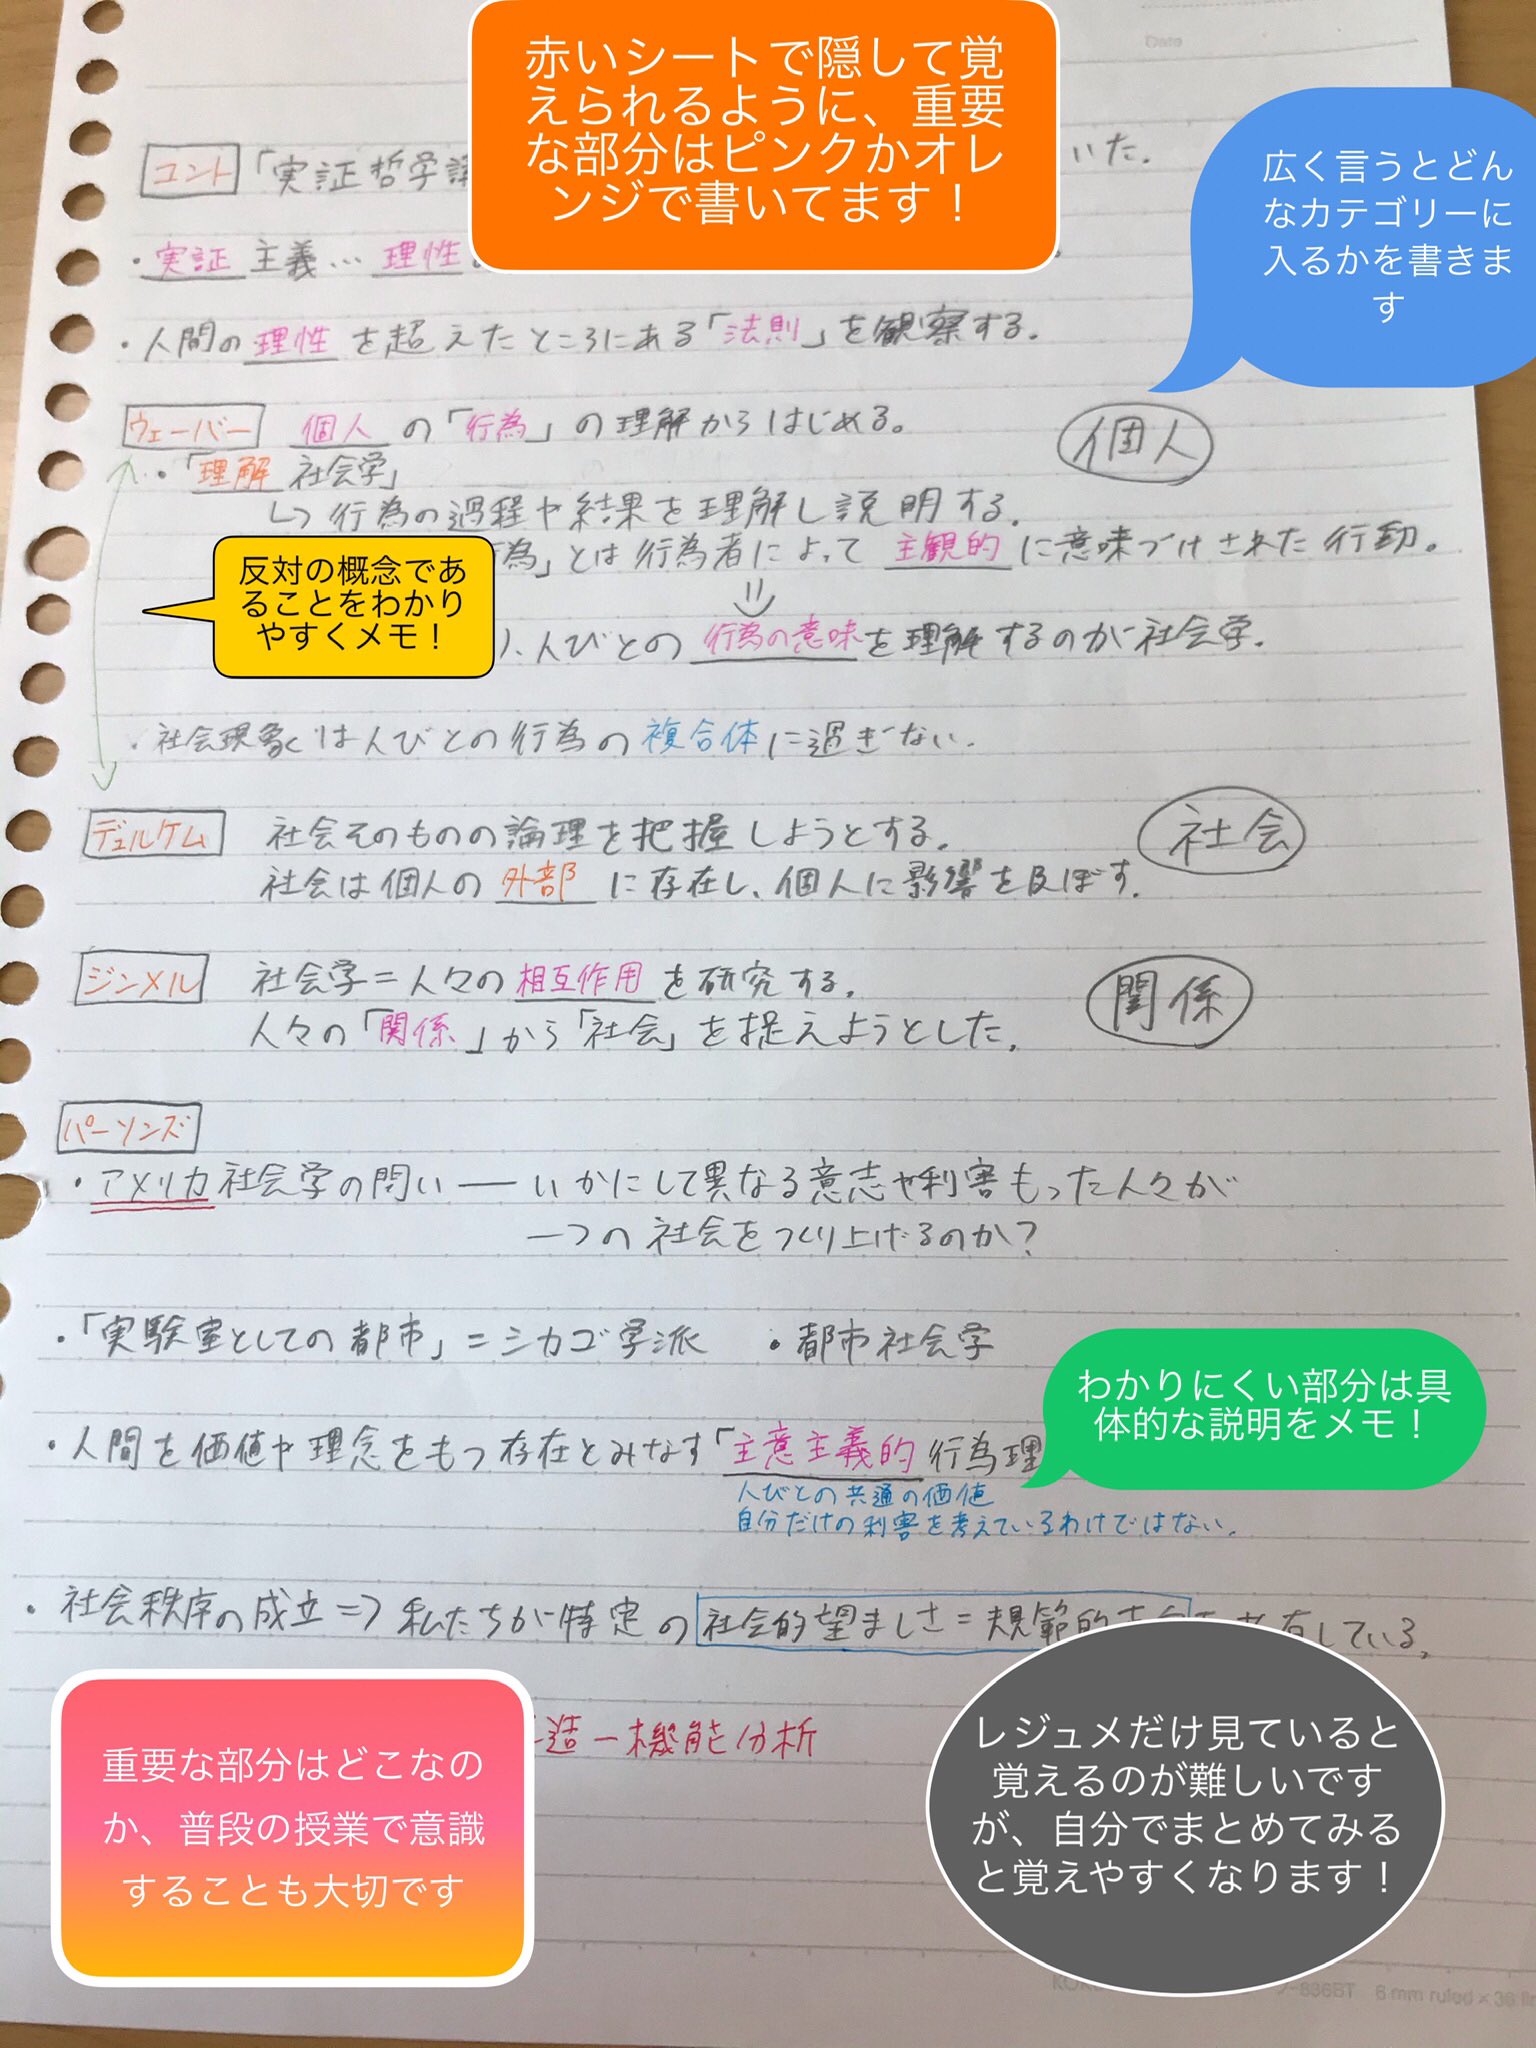 Date
赤いシートで隠して覚
えられるように、重要
な部分はピンクかオレ
ンジで書いてます！
広く言うとどん
なカテゴリーに
入るかを書きま
す
コント「実証哲学 いた.
・実証主義…理性
・人間の理性を超えたところにある「法則」を観察する.
ウェーバー 個人の「行為」の理解からはじめる。
個人
・「理解社会学」
↳行為の過程や結果を理解し説明する.
為」とは行為者によって主観的に意味づけされた行動。
反対の概念であ
ることをわかり
やすくメモ！
人びとの行為の意味を理解するのが社会学.
・社会現象は人びとの行為の複合体に過ぎない.
デュルケム 社会そのものの論理を把握しようとする.
社会
社会は個人の外部に存在し、個人に影響を及ぼす.
ジンメル 社会学=人々の相互作用を研究する.
関係
人々の「関係」から「社会」を捉えようとした.
パーソンズ
・アメリカ社会学の問い―いかにして異なる意志や利害もった人々が
一つの社会をつくり上げるのか?
・「実験室としての都市」=シカゴ学派 ・都市社会学
わかりにくい部分は具
体的な説明をメモ！
・人間を価値や理念をもつ存在とみなす「主意主義的行為理
人びとの共通の価値
自分だけの利害を考えているわけではない.
・社会秩序の成立⇒私たちが特定の社会的望ましさ=規範的 している.
造―機能分析
重要な部分はどこなの
か、普段の授業で意識
することも大切です
レジュメだけ見ていると
覚えるのが難しいです
が、自分でまとめてみる
と覚えやすくなります！
-836BT 6 mm ruled × 36